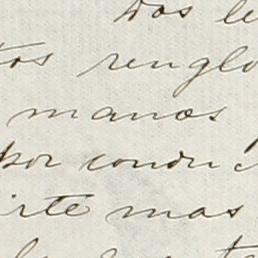 Dos le
tos renglo
manos
por conduc
irte mas